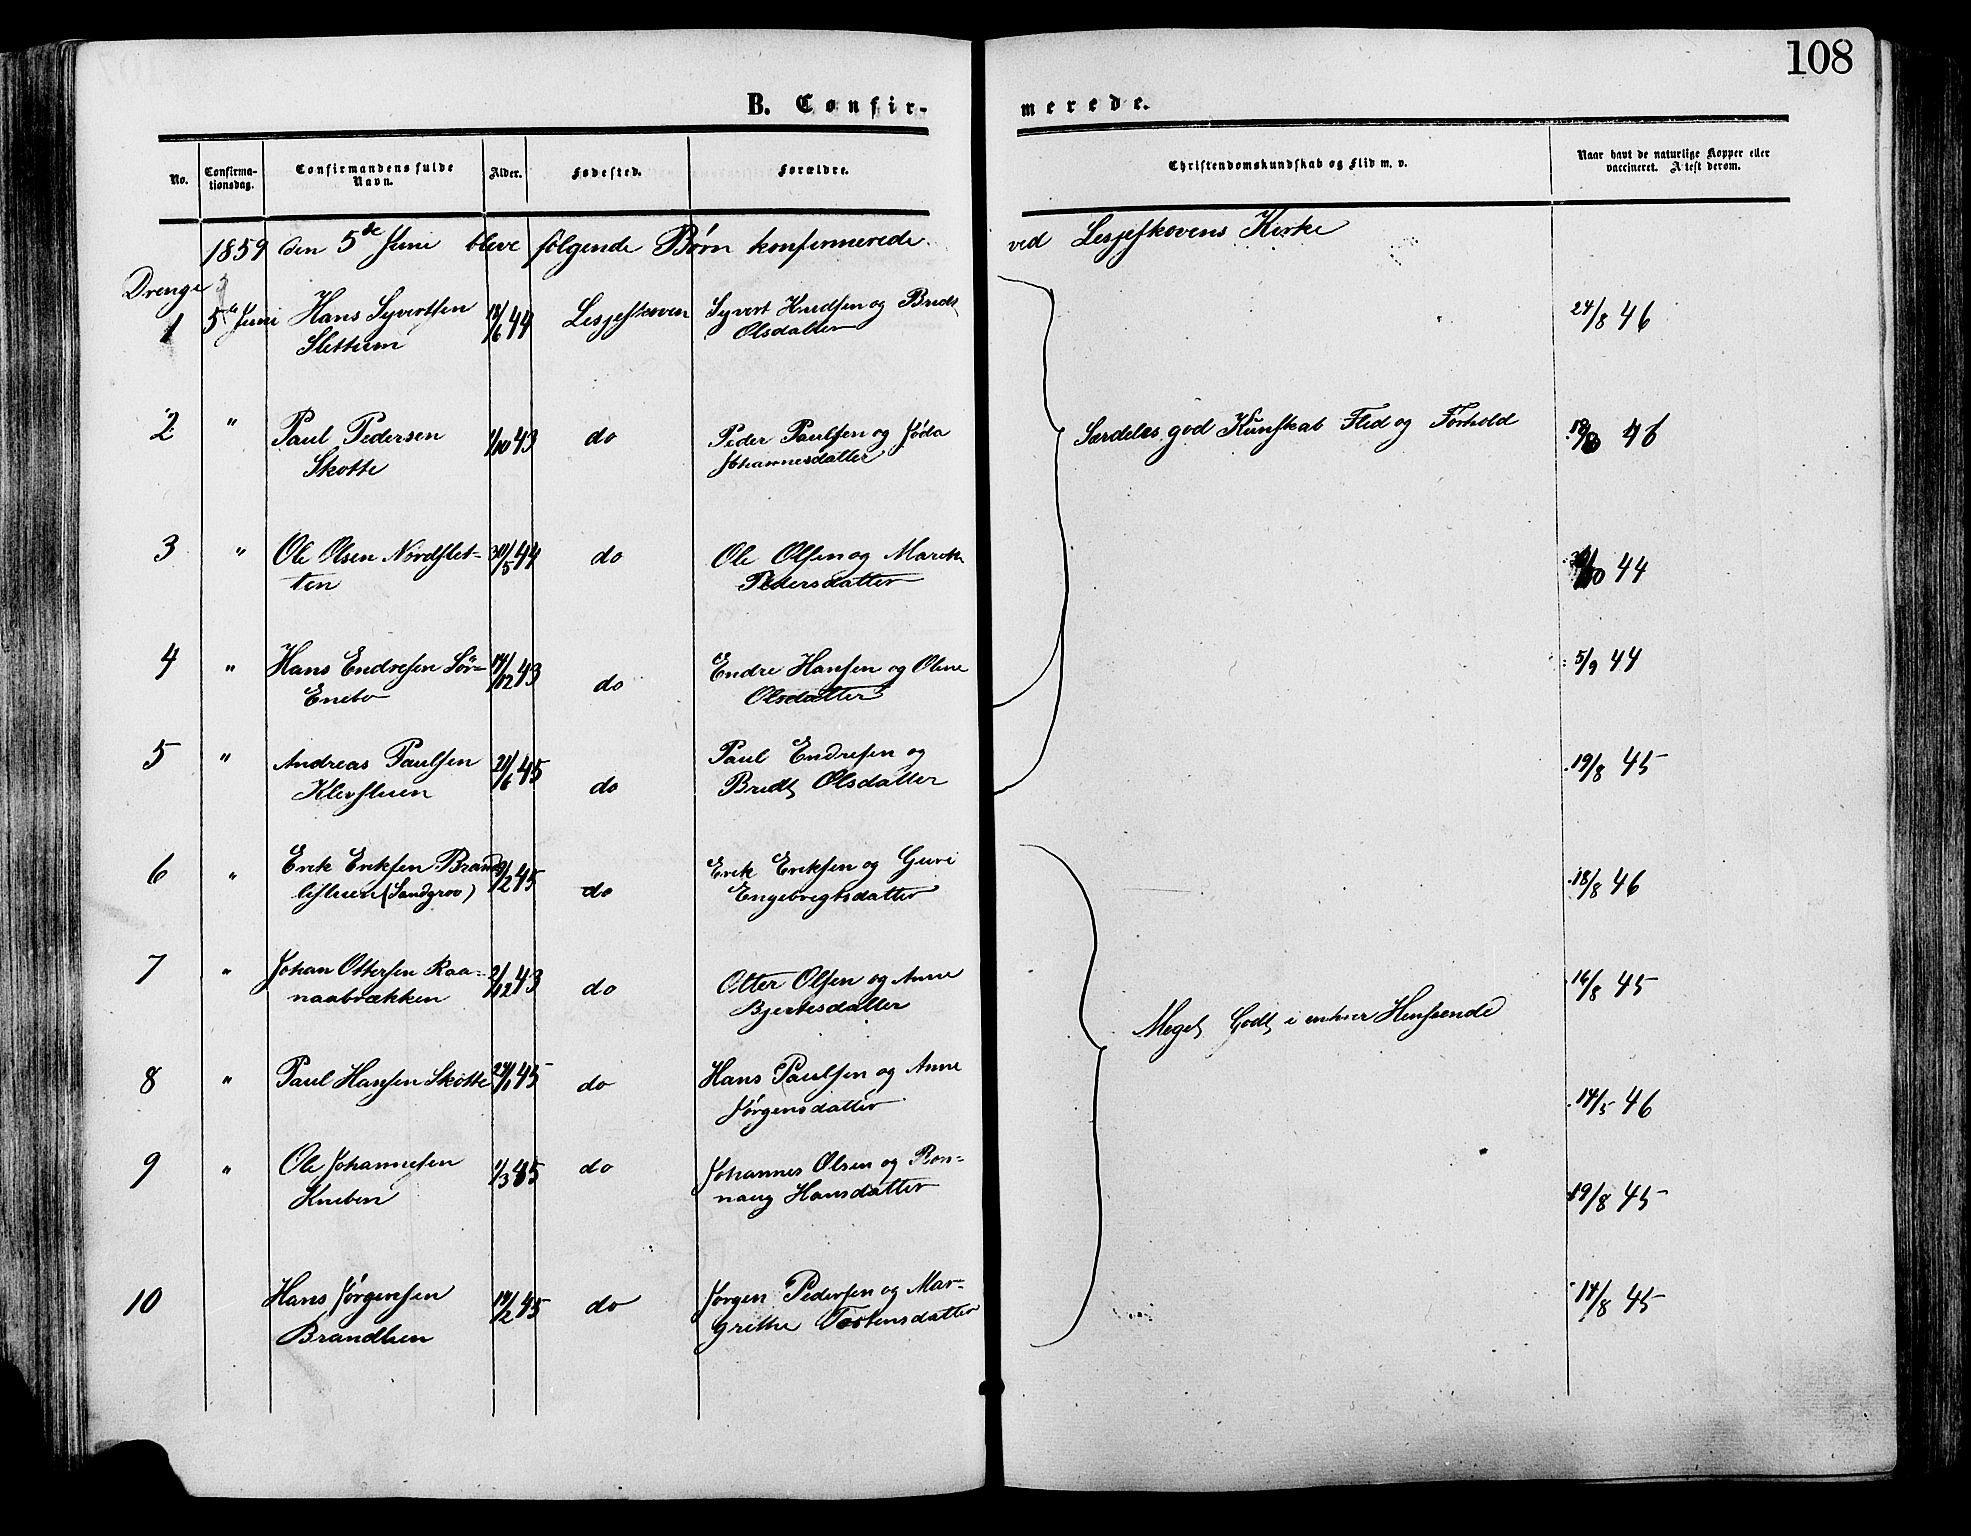 108
B. Confir- merede.
No. Confirma-tionsdag. Confirmandens fulde Navn. Alder. Fødested. Forældre. Christendomskundskab og Flid m. v. Naar havt de naturlige Kopper eller vaccineret. Attest derom.
1859 den 5de Juni bleve følgende Børn konfirmerede ved Lesjeskovens Kirke
Drenge
1 5te Juni Hans Syvertsen 18/6 44 Lesjeskoven Syvert Knudsen og Bridt 24/8 46
Slettum Olsdatter
2 " Paul Pedersen 1/10 43 do Peder Paulsen og Jøda Særdeles god Kunskab Flid og Forhold 46
Skotte Johannesdatter
3 " Ole Olsen Nordslet- 30/5 44 do Ole Olsen og Marith 44
ten Pedersdatter
4 " Hans Endresen Sør- 14/12 43 do Endre Hansen og Olene 5/9 44
Enebo Olsdatter
5 " Andreas Paulsen 21/6 45 do Paul Endresen og 19/8 45
Klevstuen Bridt Olsdatter
6 " Erik Eriksen Brand 9/2 45 do Erik Eriksen og Guri 18/8 46
listuen (Sandgrov) Engebregtsdatter
7 " Johan Ottersen Raa- 2/12 43 do Otter Olsen og Anne 16/8 45
naabrækken Bjertesdatter
Meget Godt i enhver Henseende
8 " Paul Hansen Skotte 24/1 45 do Hans Paulsen og Anne 14/5 46
Jørgensdatter
9 " Ole Johannesen 1/3 45 do Johannes Olsen og Ron- 19/8 45
Kneben naug Hansdatter
10 Hans Jørgensen 14/2 45 do Jørgen Pedersen og Mar- 14/8 45
Brandlien grithe Tostensdatter